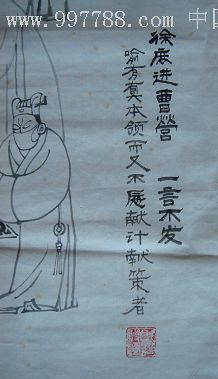 www.997788.com 中国
徐庶进曹营 一言不发
喻有真本领而又不愿献计献策者